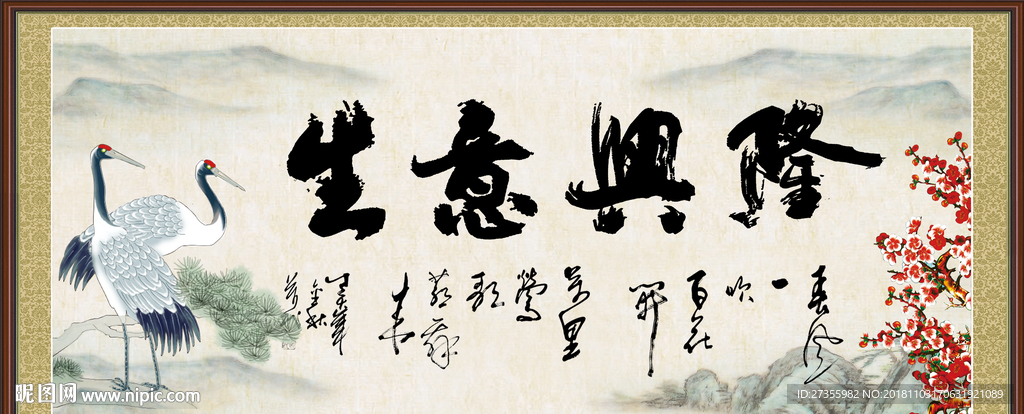 生意興隆
春風
一
吹
百花
開
萬里
鶯
歌
燕舞
春
昵图网 www.nipic.com
ID:27355982 NO:20181103170631921089